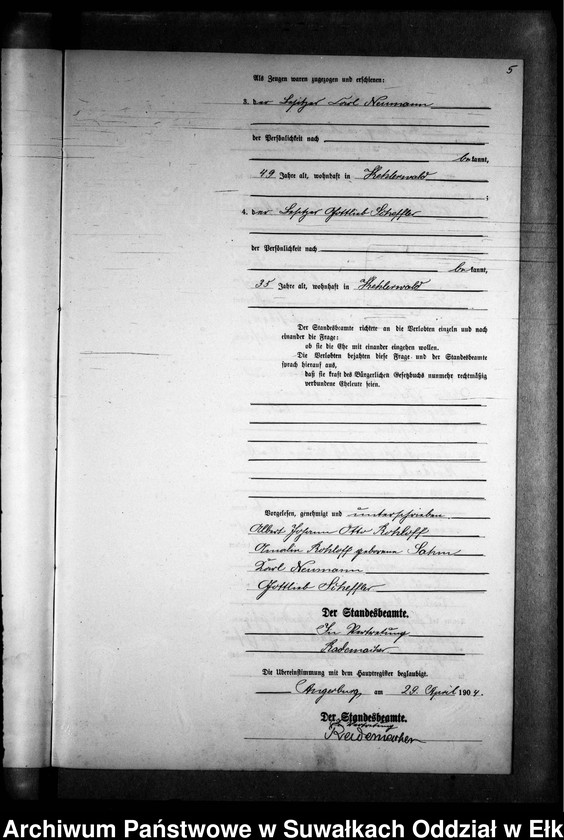 5
Als Zeugen waren zugezogen und erschienen:
3. der Besitzer Karl Neumann
der Persönlichkeit nach
bekannt,
49 Jahre alt, wohnhaft in Kehlerwald
;
4. der Besitzer Gottlieb Scheffler
der Persönlichkeit nach
bekannt,
35 Jahre alt, wohnhaft in Kehlerwald
Der Standesbeamte richtete an die Verlobten einzeln und nach
einander die Frage:
ob sie die Ehe mit einander eingehen wollen.
Die Verlobten bejahten diese Frage und der Standesbeamte
sprach hierauf aus,
daß sie kraft des Bürgerlichen Gesetzbuchs nunmehr rechtmäßig
verbundene Eheleute seien.
Vorgelesen, genehmigt und unterschrieben
Albert Johann Otto Rohloff
Amalie Rohloff geborene Sahm
Karl Neumann
Gottlieb Scheffler
Der Standesbeamte.
In Vertretung
Rademacher
Die Übereinstimmung mit dem Hauptregister beglaubigt.
Angerburg, am 29. April 1904.
Der Standesbeamte.
In Vertretung
Rademacher
Archiwum Państwowe w Suwałkach Oddział w Ełk